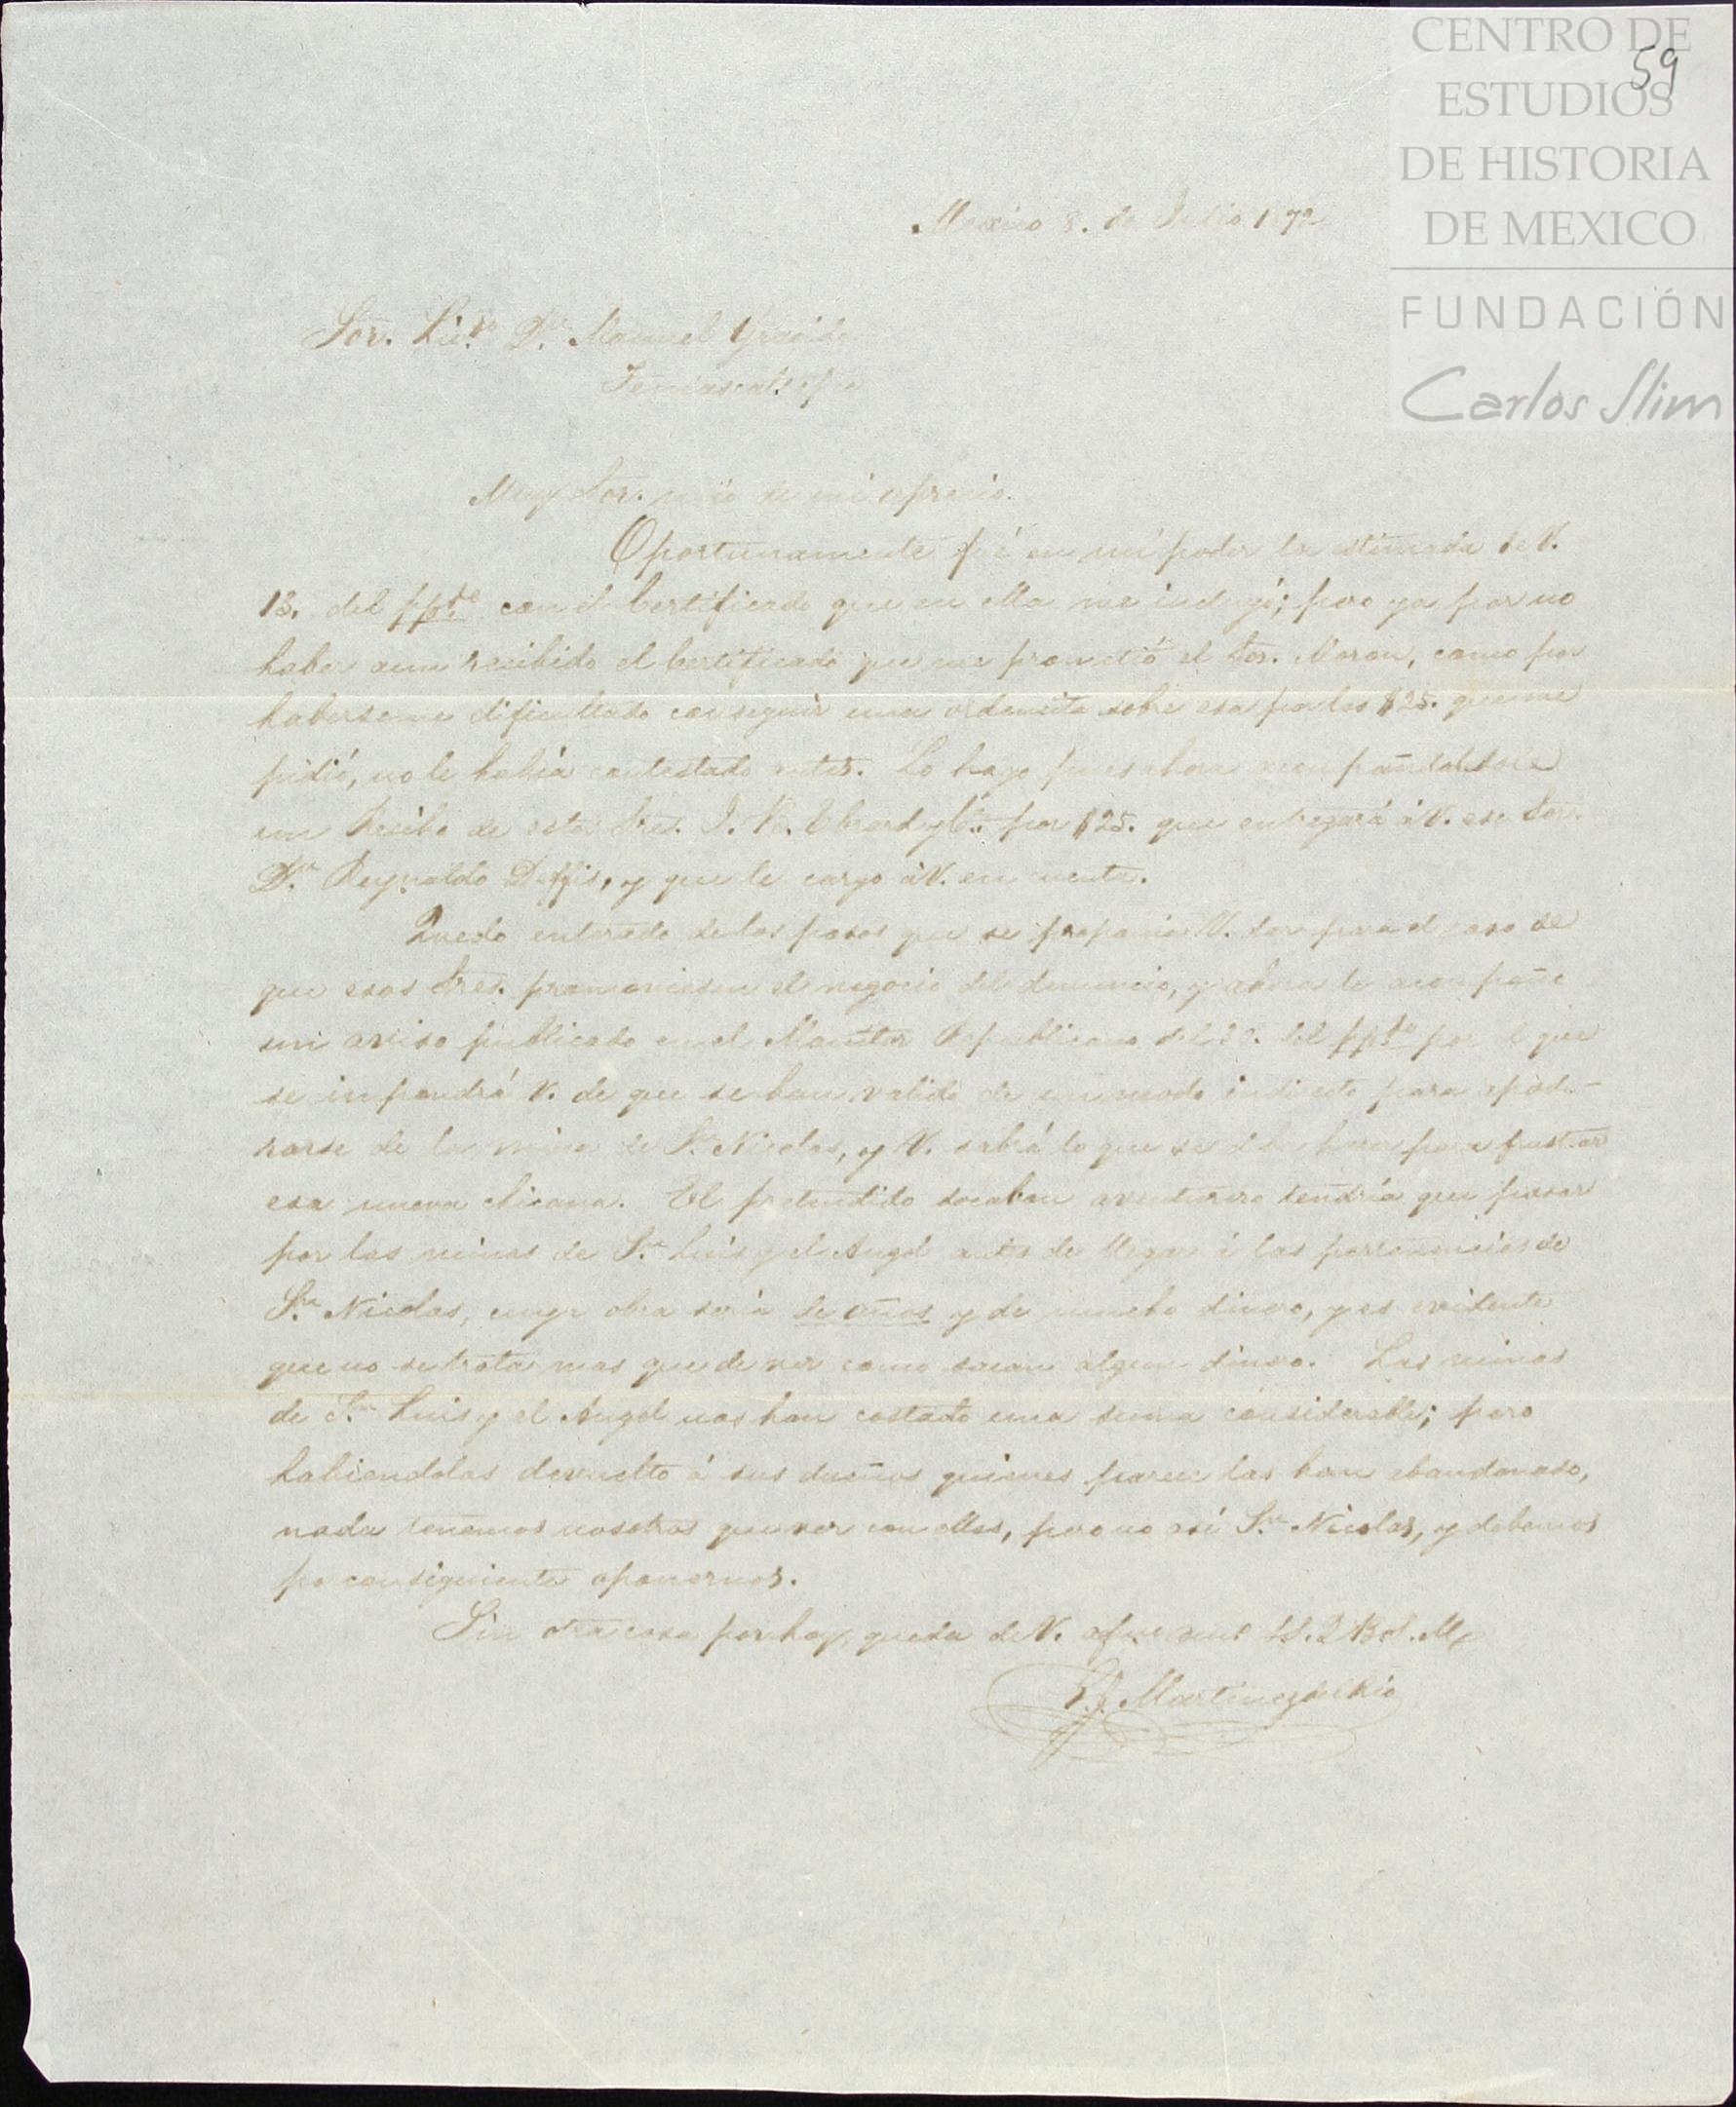 CENTRO DE
ESTUDIOS
DE HISTORIA
DE MEXICO
FUNDACIÓN
Carlos Slim
59
Mexico 8. de Julio 1872
Sor. Lic.do Dn. Manuel
Temascaltepec
Muy Sor. mio de mi aprecio.
Oportunamente fué en mi poder la estimada de V.
13. del ppdo. con el Certificado que en ella me incluyó; pero ya por no
haber aun recibido el Certificado que me prometió el Sor. Moran, como por
haberseme dificultado conseguir una ordencita sobre esa por los $25. que me
pidió, no le habia contestado antes. Lo hago pues ahora acompañandole
un Recibo de estos Sres. por $25. que entregará á V. ese Sor.
Dn. Reynaldo y que le cargo á V. en cuenta.
Quedo enterado de los pasos que se proponia V. dar para el caso de
que esos Sres. promoviesen el negocio del denuncio, y ahora le acompaño
un aviso publicado en el Monitor Republicano del ppdo. por el que
se impondrá V. de que se han valido de un modo para apode-
rarse de la mina de Sn. Nicolas, y V. sabrá lo que se debe hacer para frustrar
esa nueva chicana. El pretendido socabon aventurero tendría que pasar
por las minas de Sn. Luis y el Angel antes de llegar á las pertenencias de
Sn. Nicolas, cuya obra seria de años y de mucho dinero, y es evidente
que no se trata mas que de ver como sacan algun dinero. Las minas
de Sn. Luis y el Angel nos han costado una suma considerable; pero
habiendolas devuelto á sus dueños quienes parece las han abandonado,
nada tenemos nosotros que ver con ellas, pero no así Sn. Nicolas, y debemos
por consiguiente oponernos.
Sin otra cosa por hoy, queda de V. afmo. S.S. Q B S. M.
P. J. Martinez del Rio